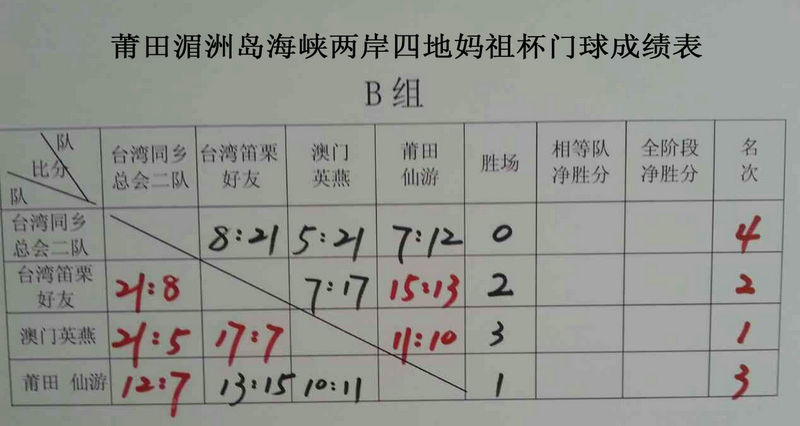 莆田湄洲岛海峡两岸四地妈祖杯门球成绩表
B组
队 比分 队 台湾同乡总会二队 台湾笛栗好友 澳门英燕 莆田仙游 胜场 相等队净胜分 全阶段净胜分 名次
台湾同乡总会二队 8:21 5:21 7:12 0 4
台湾笛栗好友 21:8 7:17 15:13 2 2
澳门英燕 21:5 17:7 11:10 3 1
莆田 仙游 12:7 13:15 10:11 1 3